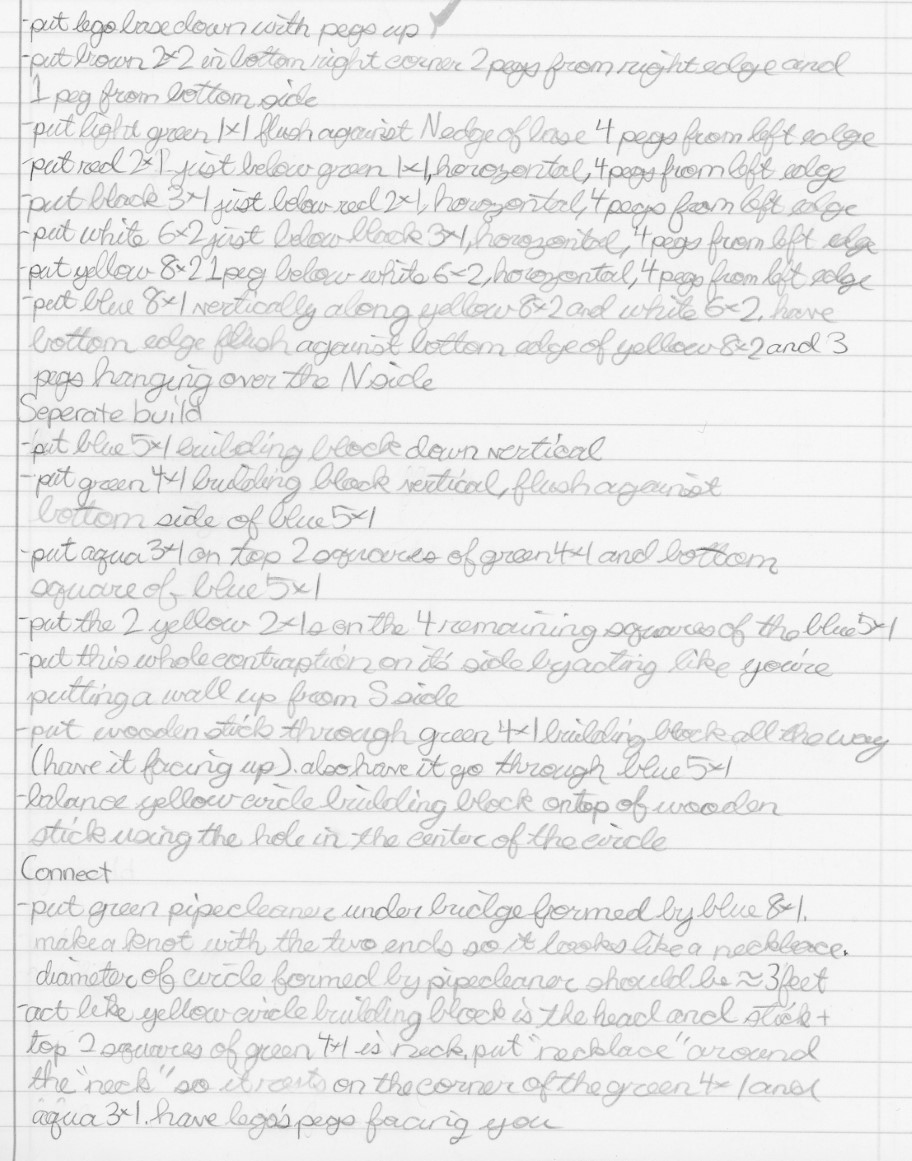 -put lego base down with pegs up ✓
-put brown 2×2 in bottom right corner 2 pegs from right edge and
1 peg from bottom side
-put light green 1×1 flush against N edge of base 4 pegs from left edge
-put red 2×1 just below green 1×1, horozontal, 4 pegs from left edge
-put black 3×1 just below red 2×1, horozontal, 4 pegs from left edge
-put white 6×2 just below black 3×1, horozontal, 4 pegs from left edge
-put yellow 8×2 1 peg below white 6×2, horozontal, 4 pegs from left edge
-put blue 8×1 vertically along yellow 8×2 and white 6×2. have
bottom edge flush against bottom edge of yellow 8×2 and 3
pegs hanging over the N side
Seperate build
-put blue 5×1 building block down vertical
-put green 4×1 building block vertical, flush against
bottom side of blue 5×1
-put aqua 3×1 on top 2 squares of green 4×1 and bottom
square of blue 5×1
-put the 2 yellow 2×1s on the 4 remaining squares of the blue 5×1
-put this whole contraption on it's side by acting like you're
putting a wall up from S side
-put wooden stick through green 4×1 building block all the way
(have it facing up). also have it go through blue 5×1
-balance yellow circle building block ontop of wooden
stick using the hole in the center of the circle
Connect
-put green pipecleaner under bridge formed by blue 8×1.
make a knot with the two ends so it looks like a necklace.
diameter of circle formed by pipecleaner should be ≈ 3 feet
-act like yellow circle building block is the head and stick +
top 2 squares of green 4×1 is neck. put "necklace" around
the "neck" so it rests on the corner of the green 4×1 and
aqua 3×1. have lego's pegs facing you